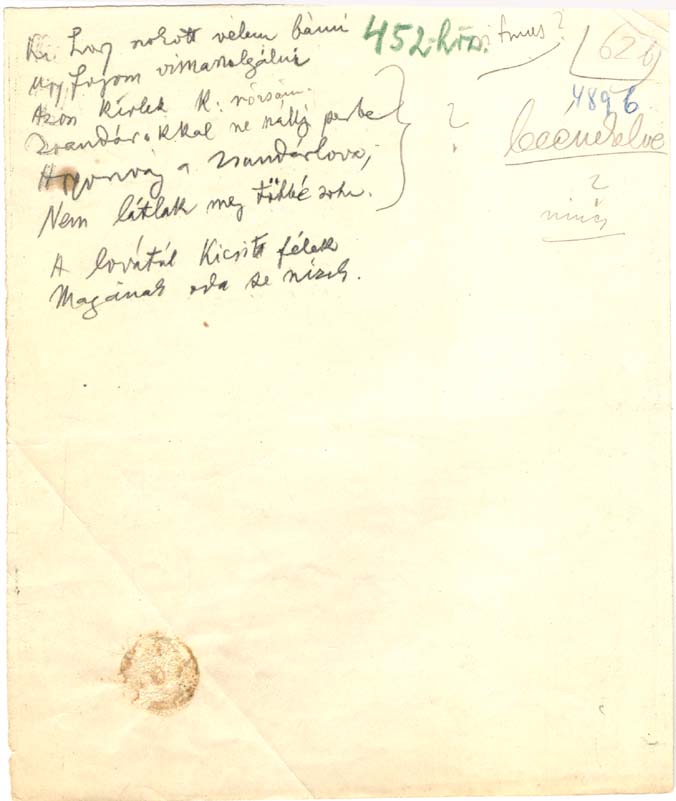 Ki hogy szokott vélem bánni
Ugy fogom viszaszolgálni
Azon kérlek K. rózsám.
Zsandárokkal ne állj perbe
a zsandárlova,
Nem látlak meg többé soha.
A lovátúl Kicsitt félek
Magának oda se nízek.
452-höz.
?
62 b
489 b
?
?
nincs